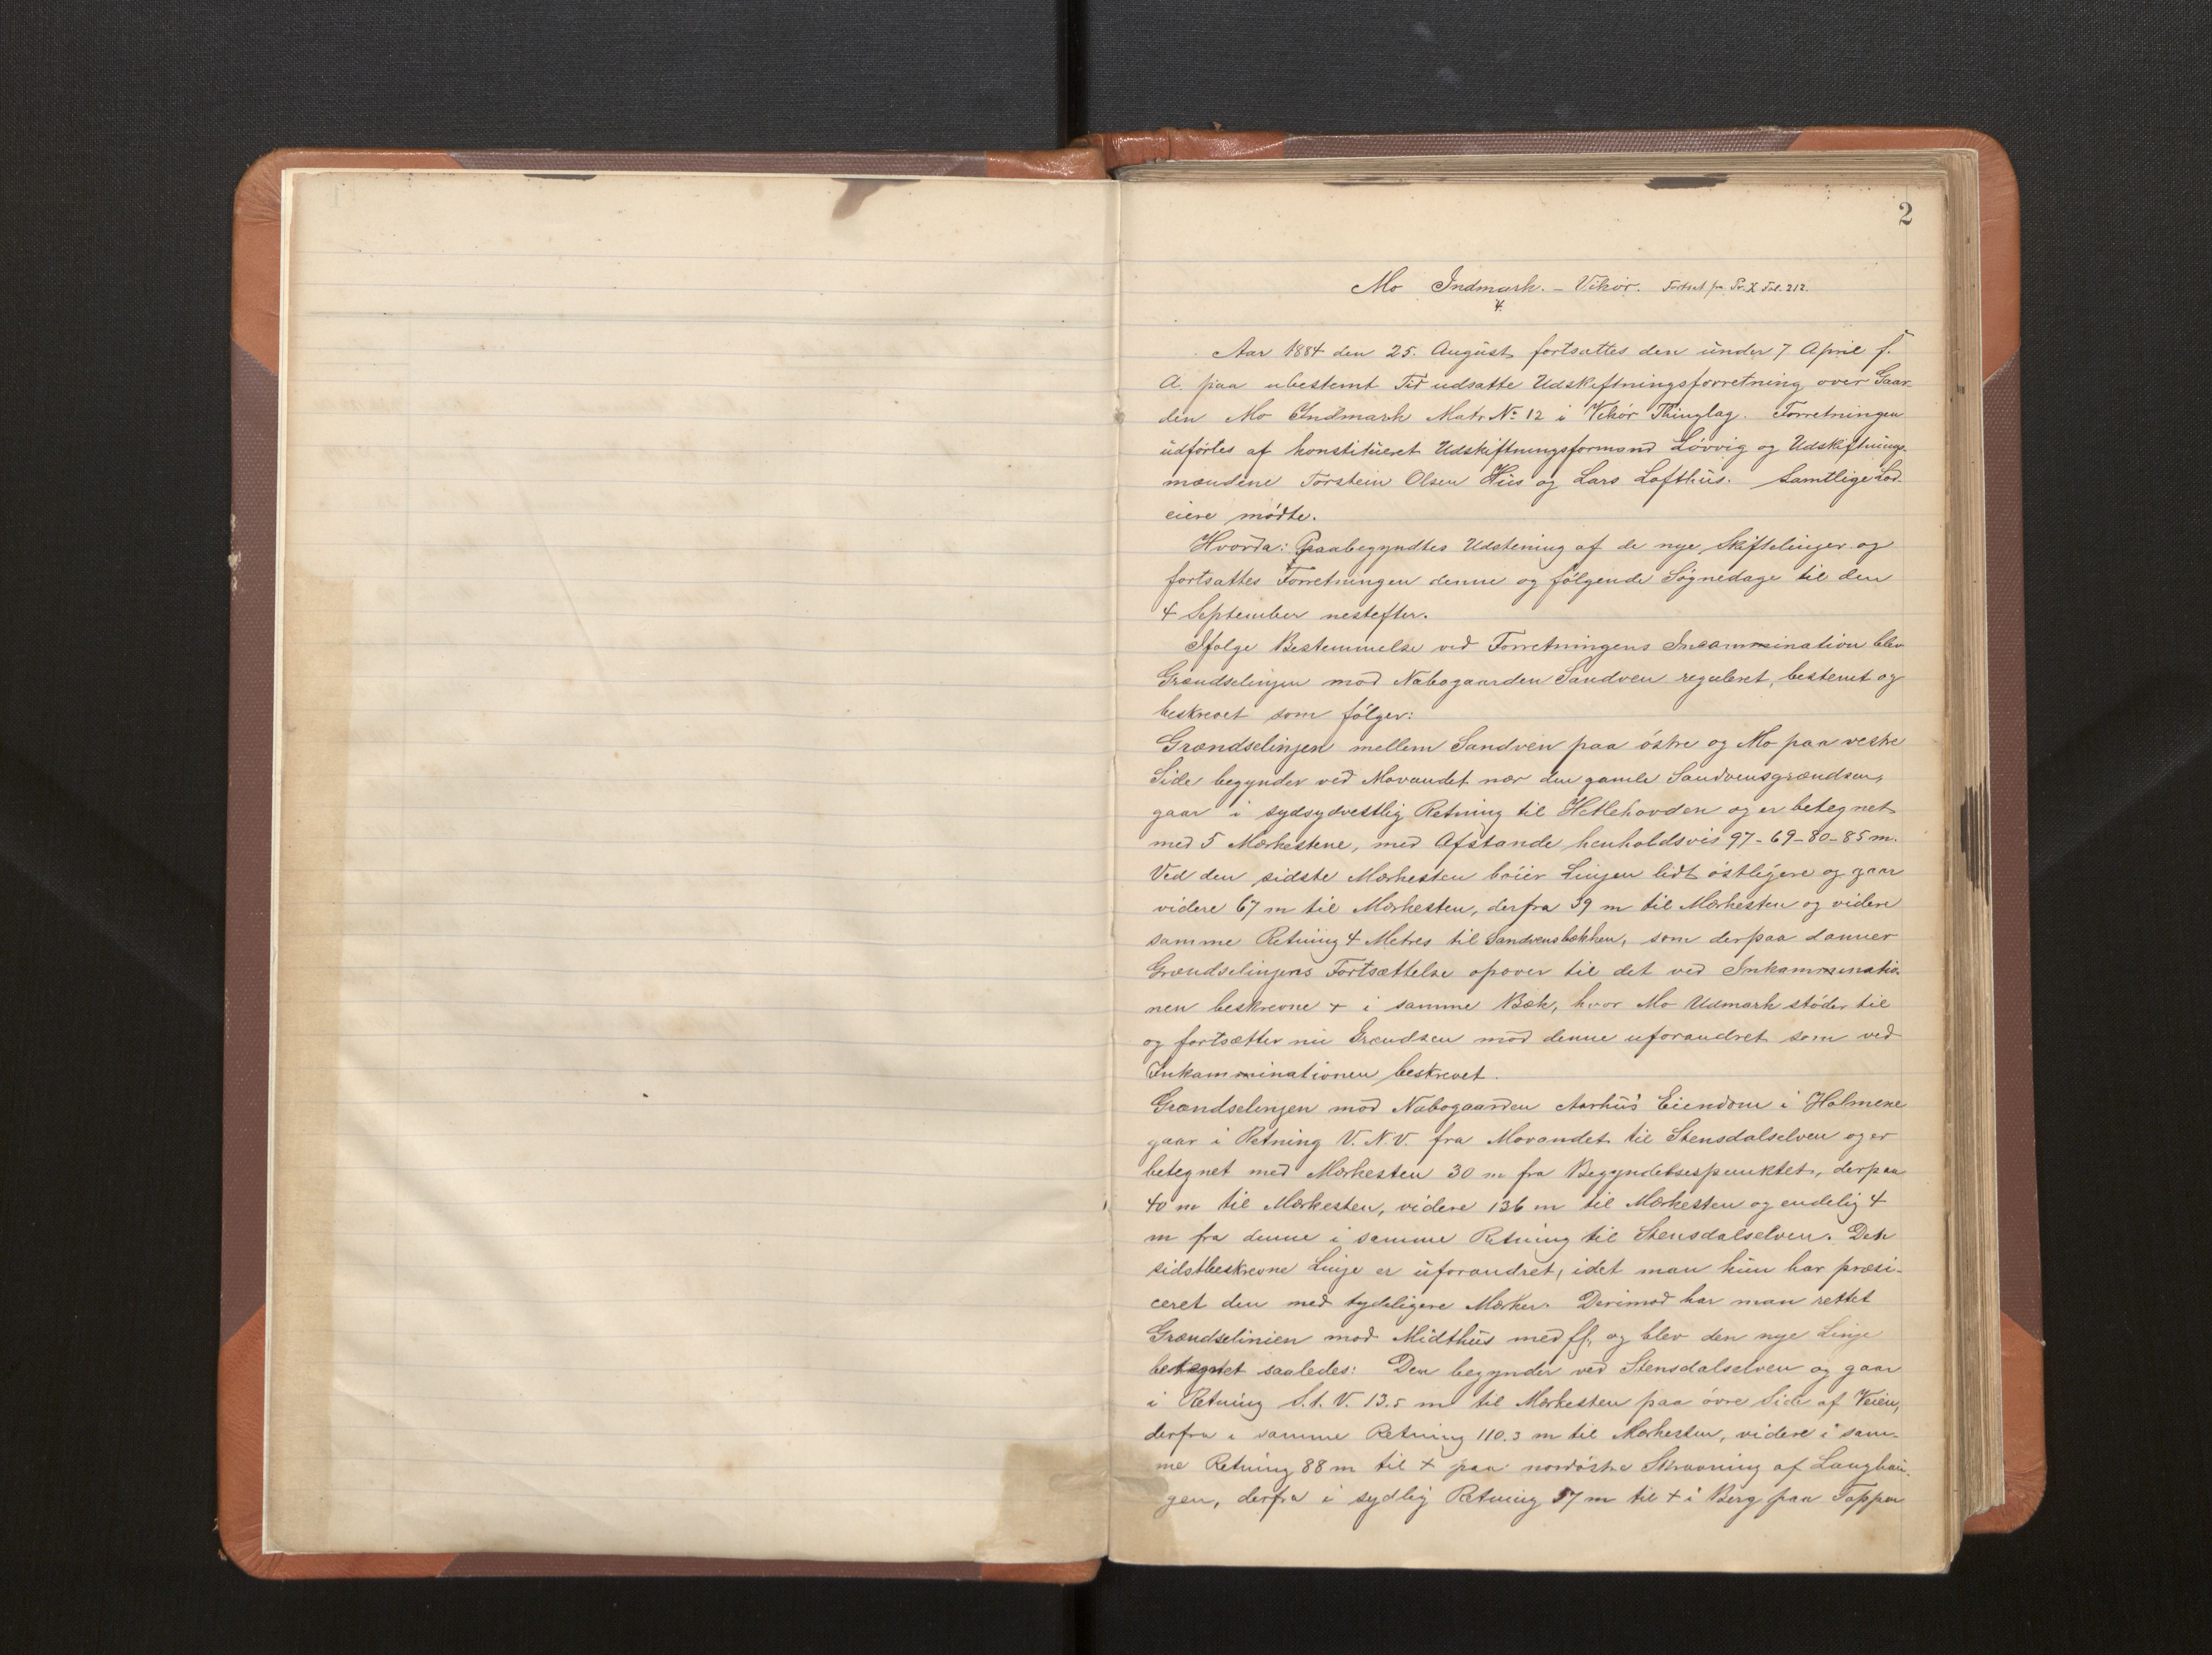 2
Mo Indmark. – Vikør. Fortsat fra Pr. X Fol. 212.
4.
Aar 1884 den 25. August fortsattes den under 7 April s.
A. paa ubestemt Tid udsatte Udskiftningsforretning over Gaar
den Mo Indmark Matr. No 12 i Vikør Thinglag. Forretningen
udførtes af konstitueret Udskiftningsformand Løvvig og Udskiftnings-
mændene Torstein Olsen Hus og Lars Lofthus. Samtlige Lod-
eiere mødte.
Hvorda: Paabegyndtes Udstening af de nye Skiftelinjer og
fortsattes Forretningen denne og følgende Søgnedage til den
4 September nestefter.
Ifølge Bestemmelse ved Forretningens Incammination blev
Grændselinjen mod Nabogaarden Sandven reguleret, bestemt og
beskrevet som følger:
Grændselinjen mellem Sandven paa østre og Mo paa vestre
Side begynder ved Movandet nær den gamle Sandvensgrændsen,
gaar i sydsydvestlig Retning til Hetlehovden og er betegnet
med 5 Mærkestene, med Afstande henholdsvis 97-69-80-85 m.
Ved den sidste Mærkesten bøier Linjen lidt østligere og gaar
videre 67 m til Mærkesten, derfra 39 m til Mærkesten og videre
samme Retning 4 Metres til Sandvensbækken, som derpaa danner
Grændselinjens Fortsættelse opover til det ved Inkamminatio-
nen beskrevne + i samme Bæk, hvor Mo Udmark støder til
og fortsætter nu Grændsen mod denne uforandret som ved
Inkamminationen beskrevet.
Grændselinjen mod Nabogaarden Aarhus's Eiendom i Holmene
gaar i Retning V.N.V. fra Movandet til Stensdalselven og er
betegnet med Mærkesten 30 m fra Begyndelsespunktet, derpaa
40 m til Mærkesten, videre 136 m til Mærkesten og endelig 4
m fra denne i samme Retning til Stensdalselven. Den
sidstbeskrevne Linje er uforandret, idet man kun har præsi-
ceret den med tydeligere Mærker. Derimod har man rettet
Grændselinien mod Midthus med fl, og blev den nye Linje
betegnet saaledes: Den begynder ved Stensdalselven og gaar
i Retning S.S.V. 13.5 m til Mærkesten paa øvre Side af Veien,
derfra i samme Retning 110.3 m til Mærkesten, videre i sam-
me Retning 88 m til + paa nordøstre Skraaning af Langhau-
gen, derfra i sydlig Retning 57 m til + i Berg paa Toppen